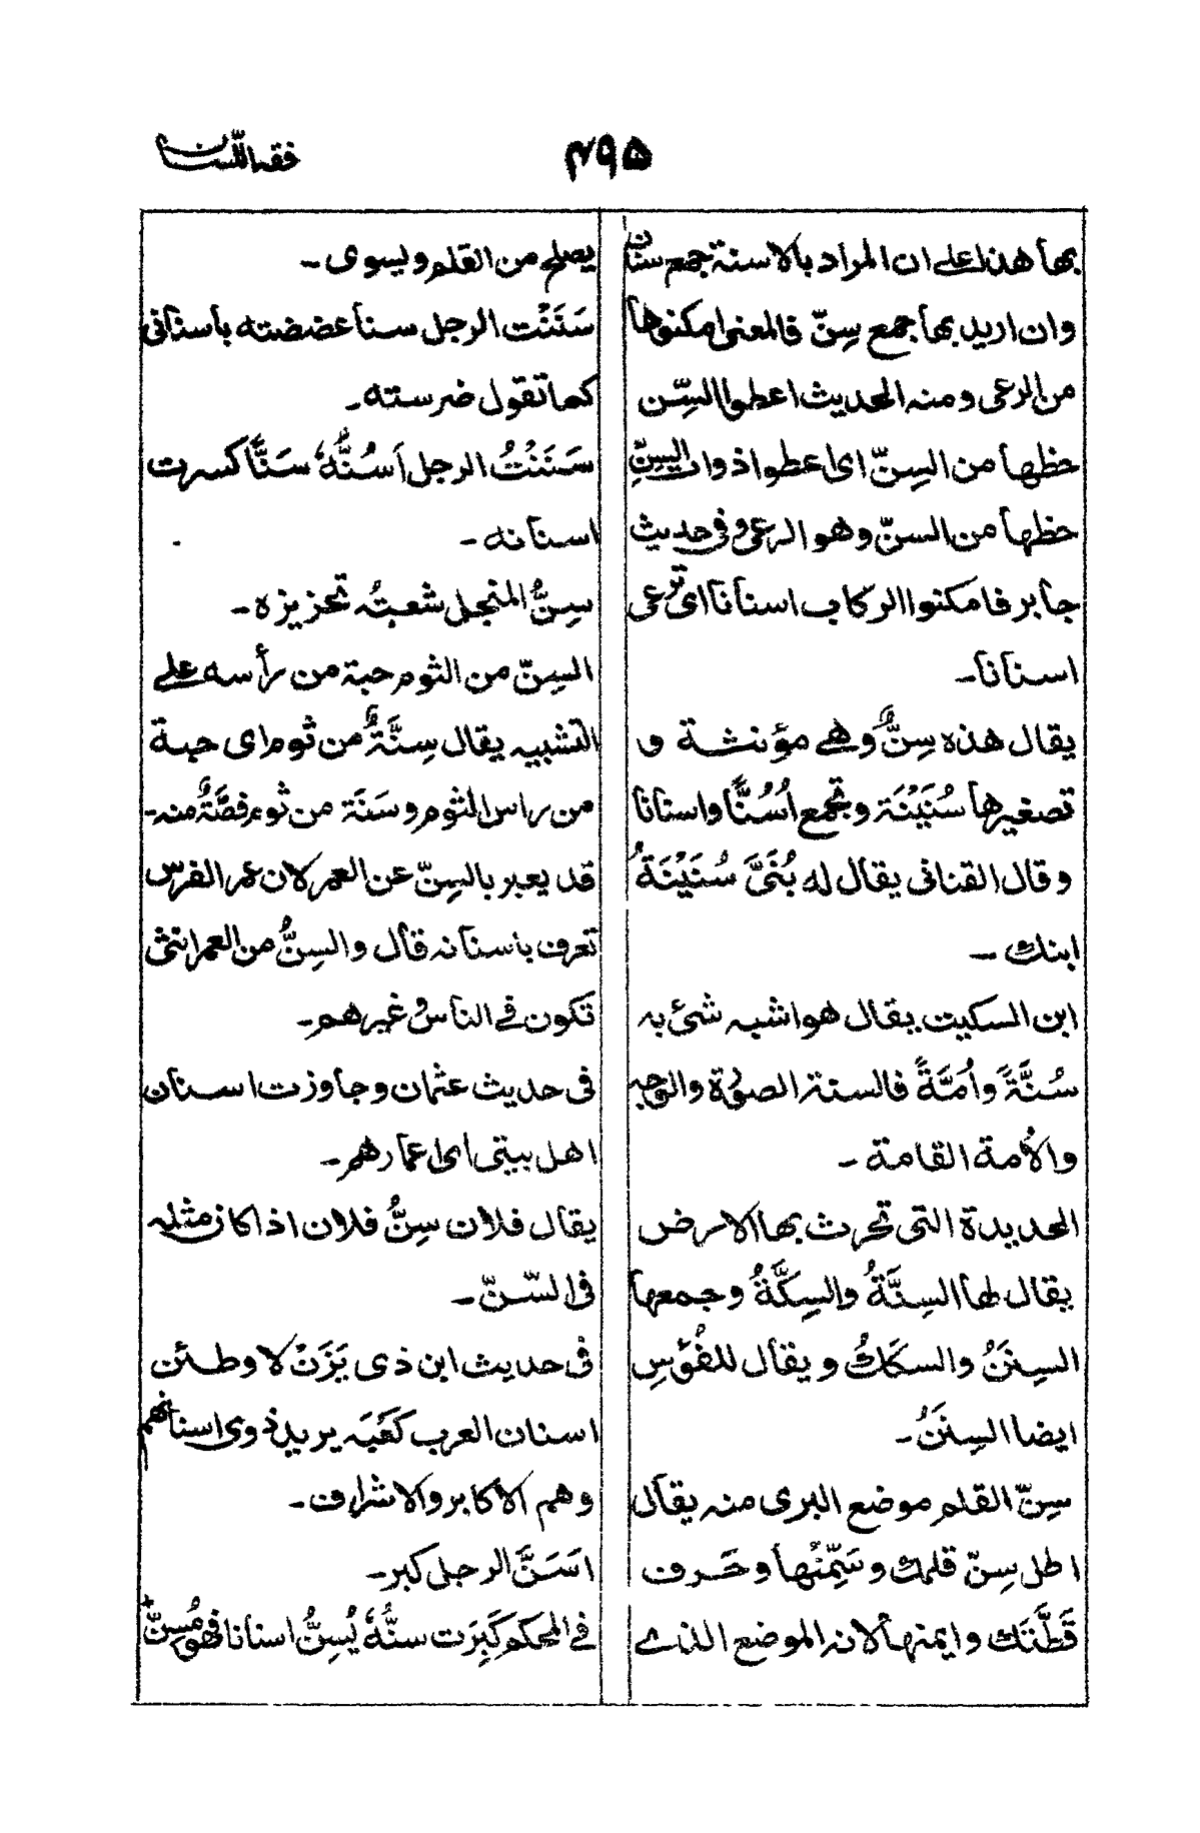 فقه اللسان
۴۹۵
بها هذا على ان المراد بالاسنة جمع سنان
وان اريد بها جمع سِنّ فالمعنى امكنوها
من الرعى ومنه الحديث اعطوا السِّن
حظها من السِنّ اى اعطوا ذوات السِنّ
حظها من السنّ وهو الرعى وفى حديث
جابر فامكنوا الركاب اسنانا اى ترعى
اسنانا۔
يقال هذه سِنٌّ وهى مؤنثة و
تصغيرها سُنَيْنَة وتجمع اُسُنًّا واسنانا
وقال القنانى يقال له بُنَىَّ سُنَيْنَةُ
ابنك ۔
ابن السكيت يقال هو اشبه شئ به
سُنَّةً واُمَّةً فالسنة الصورة والوجه
والاُمة القامة ۔
الحديدة التى تحرث بها الارض
يقال لها السِنَّةُ والسِكَّةُ وجمعها
السِنَنُ والسكَكُ ويقال للفُؤسِ
ايضا السِنَنُ۔
سِنّ القلم موضع البرى منه يقال
اطل سِنّ قلمك وسَمِّنْها وحَرف
قَطَّتَك وايمنها لانه الموضع الذى
يصلح من القلم ويسوى ۔
سَنَنْت الرجل سنا عضضته باسنانى
كما تقول ضرسته۔
سَنَنْتُ الرجل اَسُنُّهُ سَنًّا كسرت
اسنانه ۔
سِنُّ المنجل شعبتُه تحزيزه ۔
السِنّ من الثوم حبة من رأسه على
التشبيه يقال سِنَّةٌ من ثوم اى حبة
من راس الثوم وسَنَة من ثوم فصَّةٌ منه۔
قد يعبر بالسِنّ عن العمر لان عمر الفرس
تعرف باسنانه قال والسِنُّ من العمر انثى
تكون فى الناس وغيرهم۔
فى حديث عثمان وجاوزت اسنان
اهل بيتى اى اعمارهم ۔
يقال فلان سِنُّ فلان اذا كان مثله
فى السّنّ ۔
فى حديث ابن ذى يَزَنْ لاوطئن
اسنان العرب كَعْبَه يريد ذوى اسنانهم
وهم الاكابر والاشراف ۔
اَسَنَّ الرجل كبر۔
فى المحكم كَبِرَت سنُّهُ يُسِنُّ اسنانا فهو مُسِنٌّ